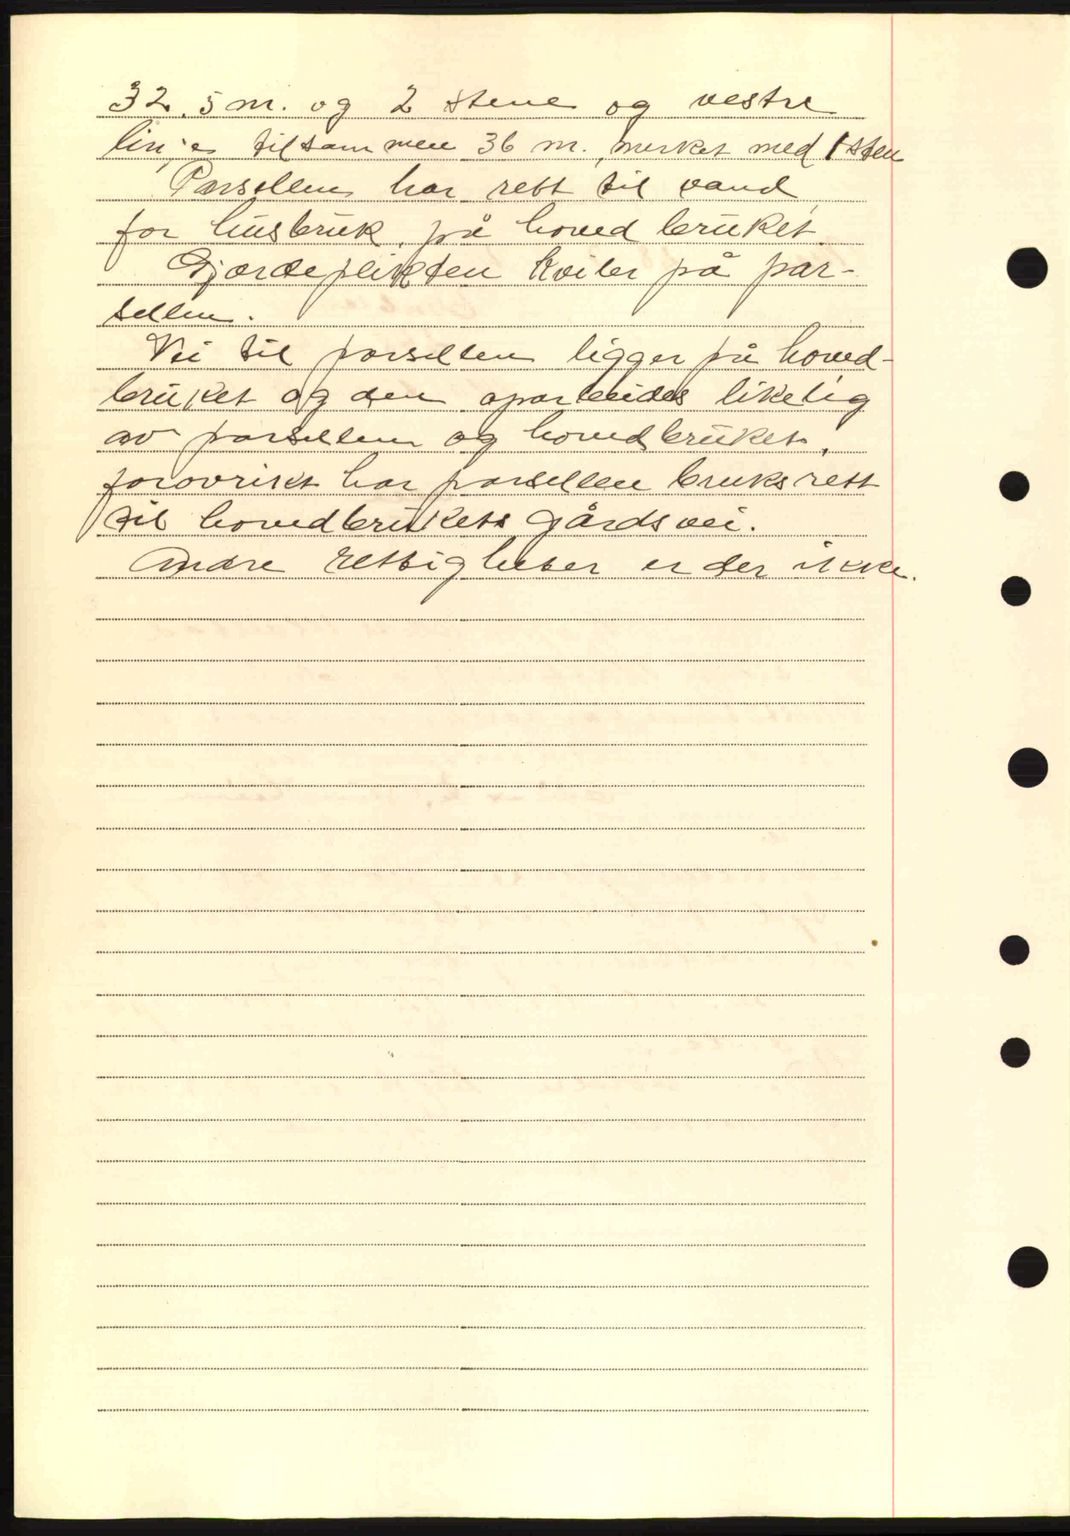 32.5 m. og 2 stene og vestre
linje tilsammen 36 m., merket med 1 sten
Parsellen har rett til vand
for husbruk, på hovedbruket.
Gjærdeplikten kviler på par-
sellen.
Vei til parsellen ligger på hoved-
bruket og den oparbeides likelig
av parsellen og hovedbruket,
forøvrikt har parsellen bruksrett
til hovedbrukets gårdsvei.
Andre rettigheter er der ikke.